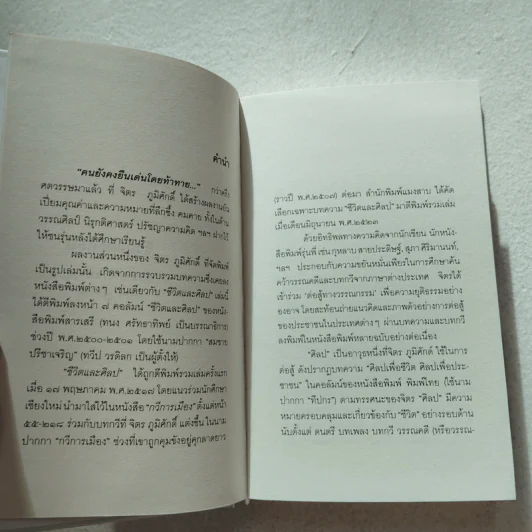 คำนำ
“คนยังคงยืนเด่นโดยท้าทาย...” กว่าครึ่ง
ศตวรรษมาแล้ว ที่ จิตร ภูมิศักดิ์ ได้สร้างผลงานอัน
เปี่ยมคุณค่าและความหมายที่ลึกซึ้ง คมคาย ทั้งในด้าน
วรรณศิลป์ นิรุกติศาสตร์ ปรัชญาความคิด ฯลฯ ฝากไว้
ให้ชนรุ่นหลังได้ศึกษาเรียนรู้
ผลงานส่วนหนึ่งของ จิตร ภูมิศักดิ์ ที่จัดพิมพ์
เป็นรูปเล่มนั้น เกิดจากการรวบรวมบทความซึ่งเคยลง
หนังสือพิมพ์ต่างๆ เช่นเดียวกับ “ชีวิตและศิลป” เล่มนี้
ได้ตีพิมพ์ลงหน้า ๗ คอลัมน์ “ชีวิตและศิลป” ของหนัง
สือพิมพ์สารเสรี (ทนง ศรัทธาทิพย์ เป็นบรรณาธิการ)
ช่วงปี พ.ศ.๒๕๐๐-๒๕๐๑ โดยใช้นามปากกา “สมชาย
ปรีชาเจริญ” (ทวีป วรดิลก เป็นผู้ตั้งให้)
“ชีวิตและศิลป” ได้ถูกตีพิมพ์รวมเล่มครั้งแรก
เมื่อ ๑๗ พฤษภาคม พ.ศ.๒๕๑๗ โดยแนวร่วมนักศึกษา
เชียงใหม่ นำมาใส่ไว้ในหนังสือ “กวีการเมือง” ตั้งแต่หน้า
๕๕-๒๑๘ ร่วมกับบทกวีที่ จิตร ภูมิศักดิ์ แต่งขึ้น ในนาม
ปากกา “กวีการเมือง” ช่วงที่เขาถูกคุมขังอยู่คุกลาดยาว
(ราวปี พ.ศ.๒๕๐๗) ต่อมา สำนักพิมพ์แสงสาบ ได้คัด
เลือกเฉพาะบทความ “ชีวิตและศิลป” มาตีพิมพ์รวมเล่ม
เมื่อเดือนมิถุนายน พ.ศ.๒๕๒๓
ด้วยอิทธิพลทางความคิดจากนักเขียน นักหนัง-
สือพิมพ์รุ่นพี่ เช่น กุหลาบ สายประดิษฐ์, สุภา ศิริมานนท์,
ฯลฯ ประกอบกับความขยันหมั่นเพียรในการศึกษาค้น
คว้าวรรณคดีและบทกวีจากภาษาต่างประเทศ จิตรได้
เข้าร่วม ‘ต่อสู้ทางวรรณกรรม’ เพื่อความยุติธรรมอย่าง
องอาจ โดยสะท้อนถ่ายแนวคิดและภาพตัวอย่างการต่อสู้
ของประชาชนในประเทศต่าง ๆ ผ่านบทความและบทกวี
ลงพิมพ์ในหนังสือพิมพ์หลายฉบับอย่างต่อเนื่อง
“ศิลป” เป็นอาวุธหนึ่งที่จิตร ภูมิศักดิ์ ใช้ในการ
ต่อสู้ ดังปรากฏบทความ “ศิลปเพื่อชีวิต ศิลปเพื่อประ-
ชาชน” ในคอลัมน์ของหนังสือพิมพ์ พิมพ์ไทย (ใช้นาม
ปากกา “ทีปกร”) ตามทรรศนะของจิตร “ศิลป” มีความ
หมายครอบคลุมและเกี่ยวข้องกับ “ชีวิต” อย่างรอบด้าน
นับตั้งแต่ ดนตรี บทเพลง บทกวี วรรณคดี (หรือวรรณ-